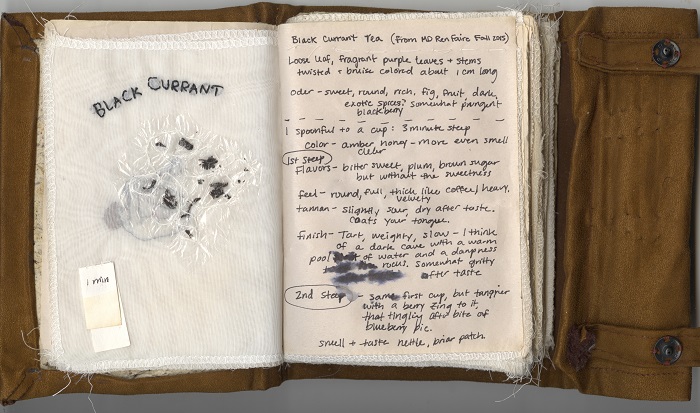 BLACK CURRANT
1 min
Black Currant Tea (from MD Ren Faire Fall 2015)
Loose leaf, fragrant purple leaves + stems
twisted + bruise colored about 1 cm long
oder - sweet, round, rich, fig, fruit, dark,
exotic spices? somewhat pungent
blackberry
1 spoonful to a cup: 3 minute steep
color - amber, honey - more even smell
clear
1st steep
Flavors - bitter sweet, plum, brown sugar
but without the sweetness
feel - round, full, thick like coffee, heavy,
velvety
tannan - slightly sour, dry after taste.
Coats your tongue.
finish - Tart, weighty, slow - I think
of a dark cave with a warm
pool of water and a dampness
rocks. somewhat gritty
after taste
2nd steep - same first cup, but tangier
with a berry zing to it.
that tingling after bite of
blueberry pie.
smell + taste nettle, briar patch.